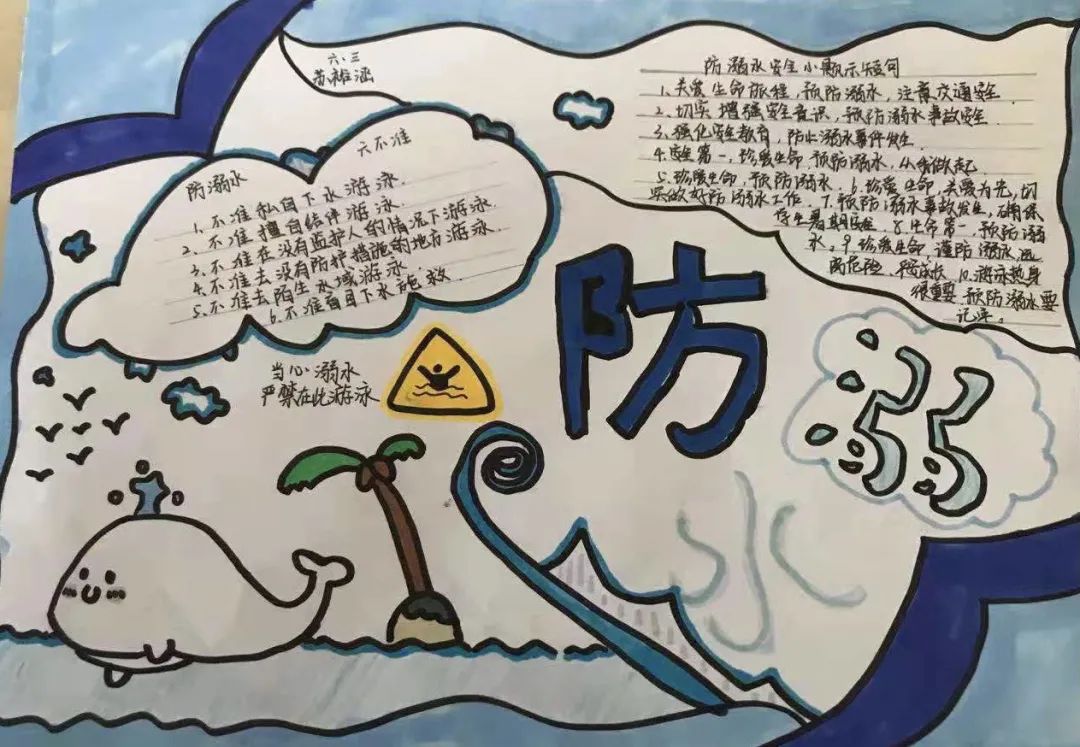 六.三
苏雅涵
防溺水安全小惠示短句
1.关爱生命旅程,预防溺水,注意交通安全.
2.切实增强安全意识,预防溺水事故安全.
3.强化安全教育,防止溺水事件发生.
4.安全第一,珍爱生命,预防溺水,从我做起.
5.珍爱生命,预防溺水.6.珍爱生命,关爱为先,切
实做好防溺水工作.7.预防溺水事故发生,确保
学生暑期安全.8.生命第一,预防溺
水.9.珍爱生命 谨防溺水,远
离危险, 10.游泳热身
很重要 预防溺水要
记牢.
防溺水
六不准
1.不准私自下水游泳.
2.不准擅自结伴游泳.
3.不准在没有监护人的情况下游泳
4.不准去没有防护措施的地方游泳.
5.不准去陌生水域游泳.
6.不准盲目下水施救
当心溺水
严禁在此游泳
防
溺
水